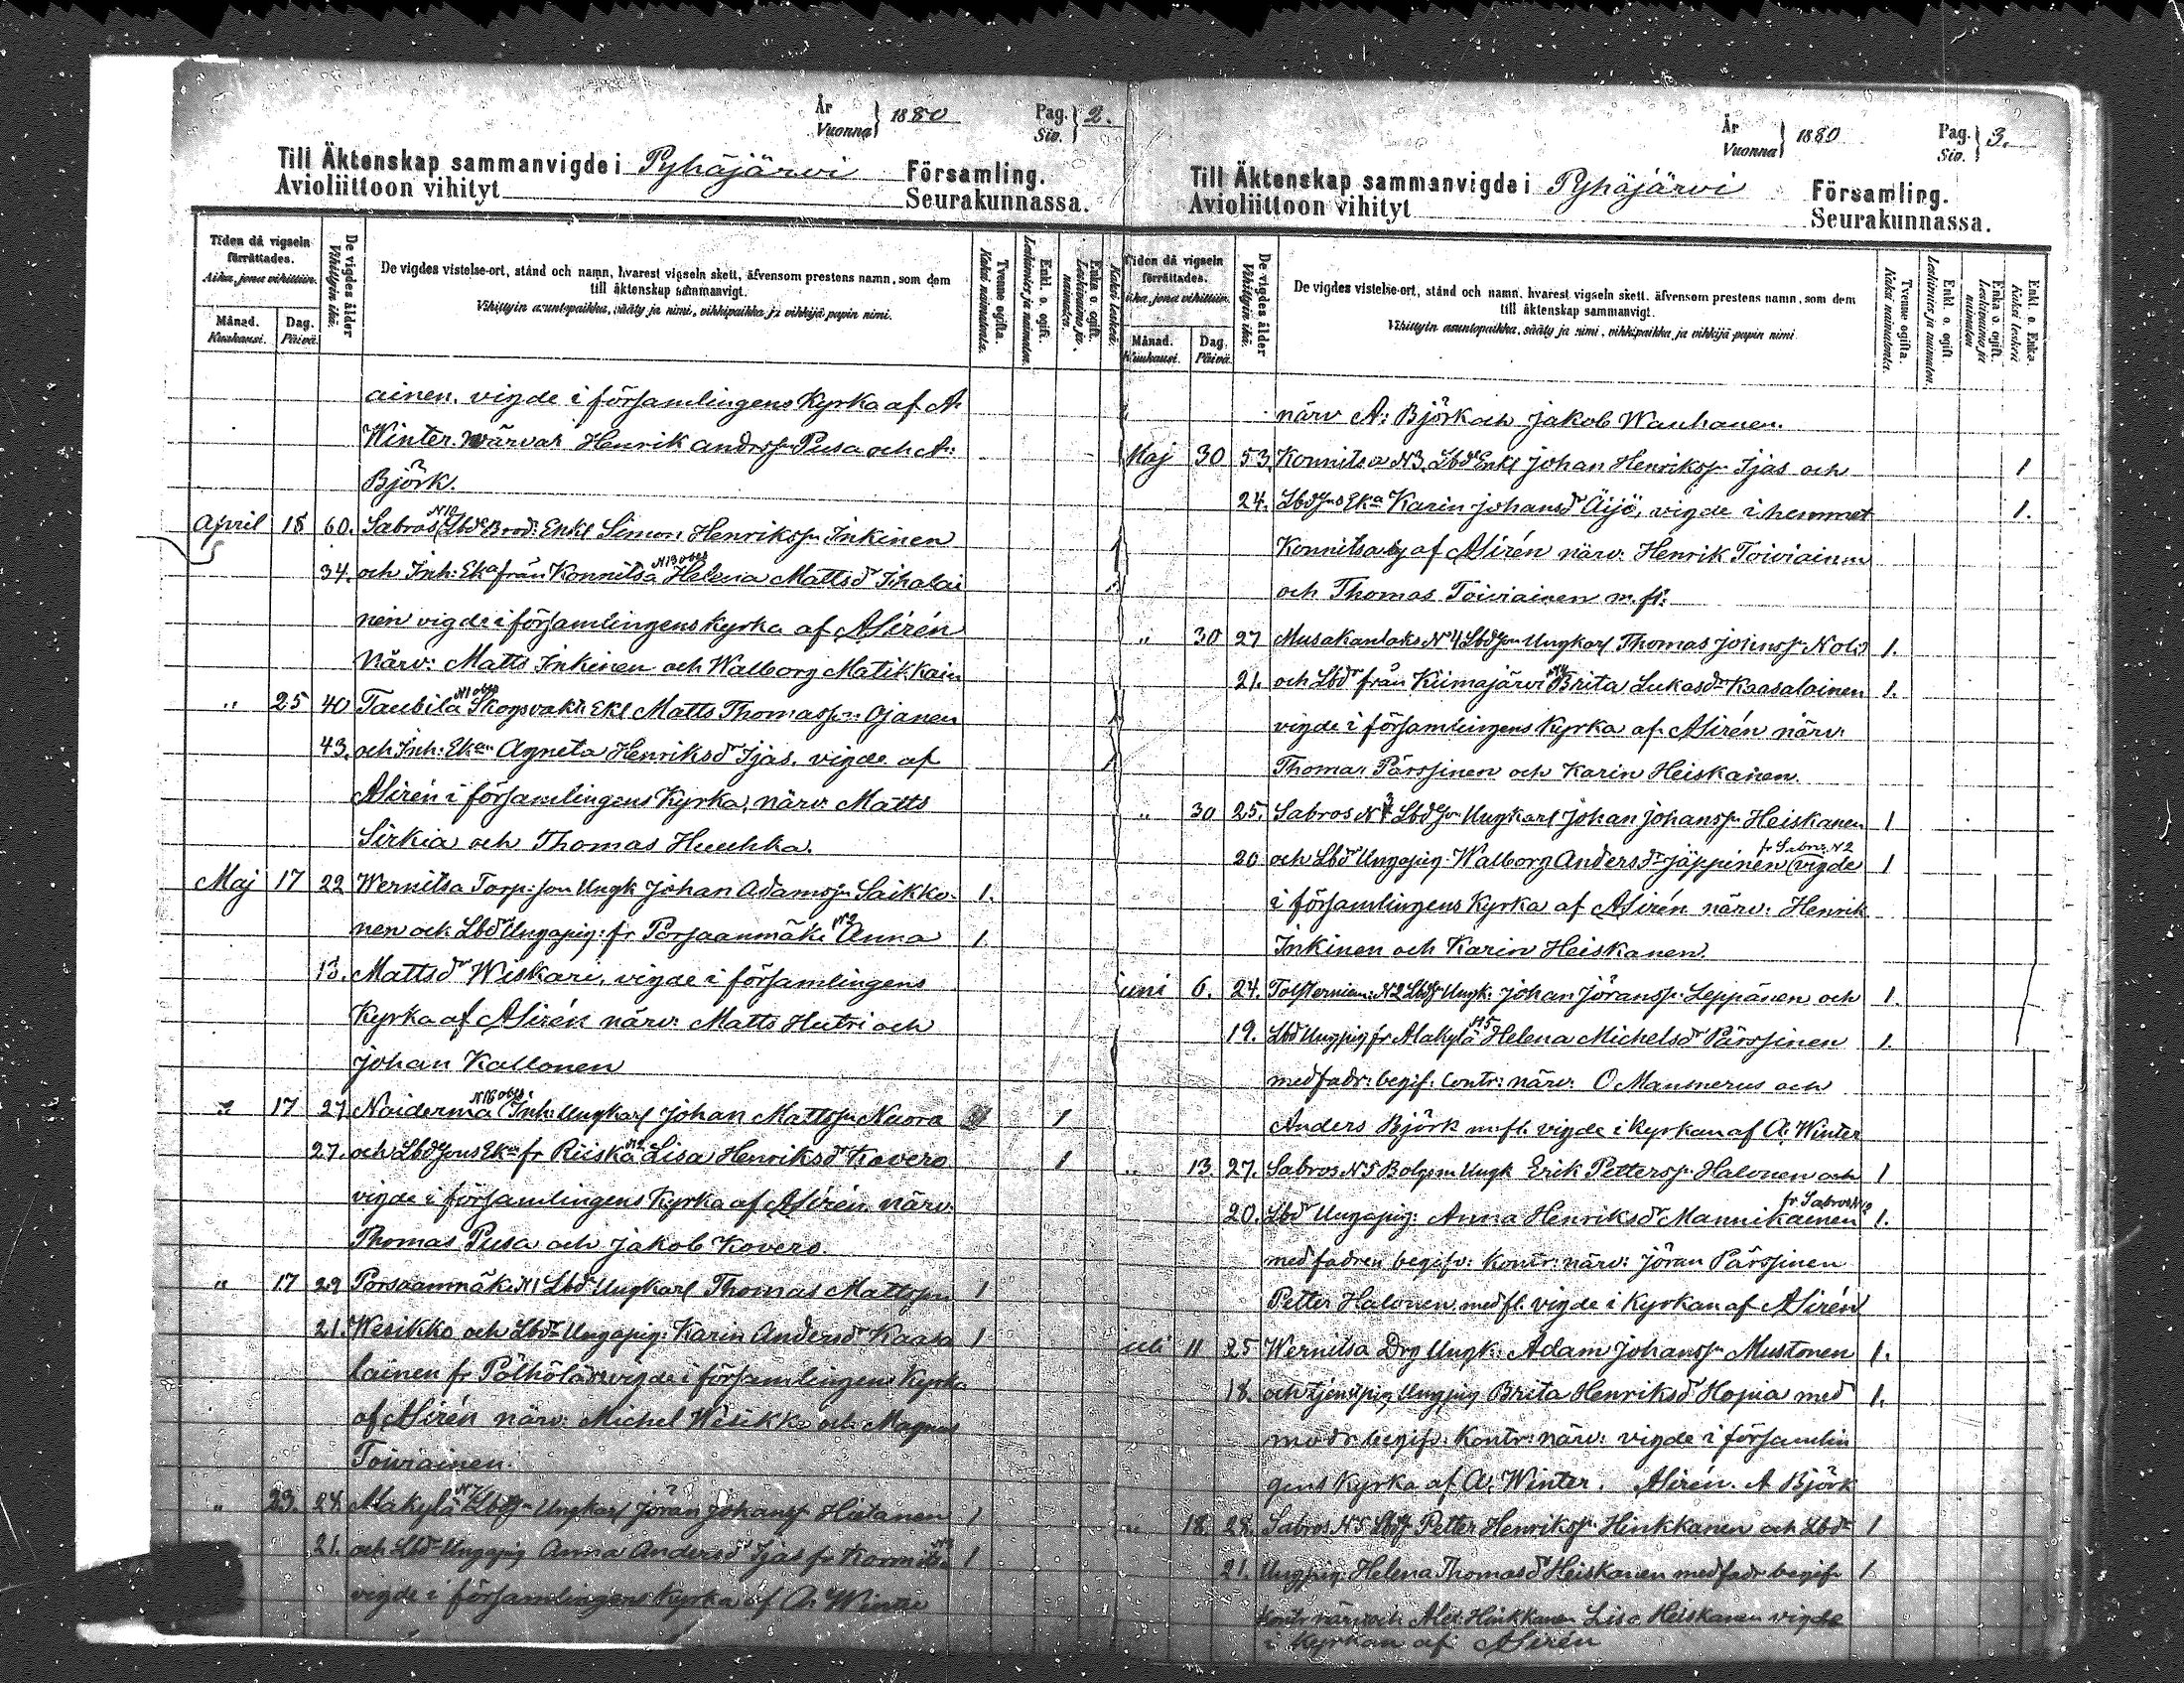 År
Vuonna } 1880
Pag.
Siv. } 2.
Till Äktenskap sammanvigde i Pyhäjärvi Församling.
Avioliittoon vihityt Seurakunnassa.
Tiden då vigseln
förrättades.
Aika, jona vihittiin.
Månad.
Kuukausi.
Dag.
Päivä.
De vigdes ålder
Vihittyin ikä.
De vigdes vistelse-ort, stånd och namn, hvarest vigseln skett, äfvensom prestens namn, som dem
till äktenskap sammanvigt.
Vihittyin asuntopaikka, sääty ja nimi, vihkipaikka ja vihkijä papin nimi.
Tvenne ogifta.
Kaksi naimatonta.
Enkl. o. ogift.
Leskimies ja naimaton.
Enka o. ogift.
Leskivaimo ja
naimaton.
Kaksi leskeä.
ainen. vigde i församlingens Kyrka af A.
Winter. närvar Henrik Andersson Pusa och A:
Björk.
April 18 60. Sabros N10 Lbds Brod: Enkl Simon Henriksson Inkinen
34. och Inh: Eka från Konnitsa N13 obes Helena Mattsdr Ihalai
nen vigde i församlingens Kyrka af ASirén
Närv: Matts Inkinen och Walborg Matikkain
" 25 40 Taubila N1 obes Skogsvakt: Ekl Matts Thomasson Ojanen
43. och Inh: Ekan Agneta Henriksdr Ijäs. vigde af
ASirén i församlingens Kyrka, närv Matts
Sirkia och Thomas Huuhka.
Maj 17 22 Wernitsa Torp: son Ungk Johan Adamsson Saikko- 1.
nen och Lbdr Ungapig: fr Porsaanmäki N2 Anna 1.
18. Mattsdr Wiskari, vigde i församlingens
Kyrka af ASirén närv: Matts Hutri och
Johan Kallonen
" 17 27 Noiderma N16 obes Inh: Ungkarl Johan Mattsson Nuora 1
27. och Lbdsons Eka fr Riiska N2 Lisa Henriksdr Kovero 1
vigde i församlingens Kyrka af ASirén. närv:
Thomas Pusa och Jakob Kovero.
" 17 29 Porsaanmäki N1 Lbd Ungkarl Thomas Mattsson 1
21. Wesikko och Lbdr Ungapig: Karin Andersdr Kaasa 1
lainen fr Pölhölä vigde i församlingens Kyrka
af ASirén närv: Michel Wesikko och Magnus
Toiviainen.
" 23. 28 Alakylä N7 Lbdson Ungkarl Jöran Johansson Hietanen 1
21. och Lbdr Ungapig Anna Andersdr Ijäs fr Konnitsa 1
vigde i församlingens Kyrka af A. Winter
År
Vuonna } 1880
Pag.
Siv. } 3.
Till Äktenskap sammanvigde i Pyhäjärvi Församling.
Avioliittoon vihityt Seurakunnassa.
Tiden då vigseln
förrättades.
Aika, jona vihittiin.
Månad.
Kuukausi.
Dag.
Päivä.
De vigdes ålder
Vihittyin ikä.
De vigdes vistelse-ort, stånd och namn, hvarest vigseln skett, äfvensom prestens namn, som dem
till äktenskap sammanvigt.
Vihittyin asuntopaikka, sääty ja nimi, vihkipaikka ja vihkijä papin nimi
Tvenne ogifta.
Kaksi naimatonta.
Enkl. o. ogift.
Leskimies ja naimaton.
Enka o. ogift.
Leskivaimo ja
naimaton
Enkl. o. Enka.
Kaksi leskeä
närv A: Björk och Jakob Wauhanen.
Maj 30 53 Konnitsa N3. Lbd Enkl Johan Henriksson Ijäs och 1
24. Lbdsons Eka Karin Johansdr Äijö, vigde i hemmet 1.
Konnitsa by af ASirén närv: Henrik Toiviainen
och Thomas Toiviainen m.fl:
" 30 27 Musakanlaks N4 Lbdson Ungkarl Thomas Johnsson Nolo 1.
21. och Lbdr från Kiimajärvi Brita Lukasdr Kaasalainen 1.
vigde i församlingens Kyrka af ASirén närv.
Thomas Pärssinen och Karin Heiskanen.
" 30 25. Sabros N3 Lbdson Ungkarl Johan Johansson Heiskanen 1
20 och Lbdr Ungapig Walborg Andersdr Jäppinen fr Sabros N2 vigde 1
i församlingens Kyrka af ASirén närv: Henrik
Inkinen och Karin Heiskanen.
uni 6. 24. Tolsterniem: N2 Lbds Ungk: Johan Jöransson Leppänen och 1.
19. Lbd Ungpig fr Alakylä N5 Helena Michelsdr Pärssinen 1.
med fadr: begif: Contr: närv: O Mansnerus och
Anders Björk m.fl. vigde i Kyrkan af A. Winter
" 13. 27. Sabros N5 Bolgsm Ungk Erik Pettersson Halonen och 1
20. Lbdr Ungapig: Anna Henriksdr Mannikainen fr Sabros N12 1.
med fadren begifv: Kontr: närv: Jöran Pärssinen
Petter Halonen med fl. vigde i Kyrkan af ASirén
uli 11 25 Wernitsa Drg Ungk: Adam Johansson Mustonen 1.
18. och tjenstpig Ungpig Brita Henriksdr Hopia med 1.
modr begifv: Kontr: närv: vigde i församlin
gens Kyrka af A. Winter. ASirén. A Björk
" 18 28. Sabros N5 Lbds Petter Henriksson Hinkkanen och Lbdr 1
21. Ungpig: Helena Thomasdr Heiskanen med fadr begif- 1
Kontr närv och Alex: Hinkkanen Lisa Heiskanen vigde
i Kyrkan af ASirén